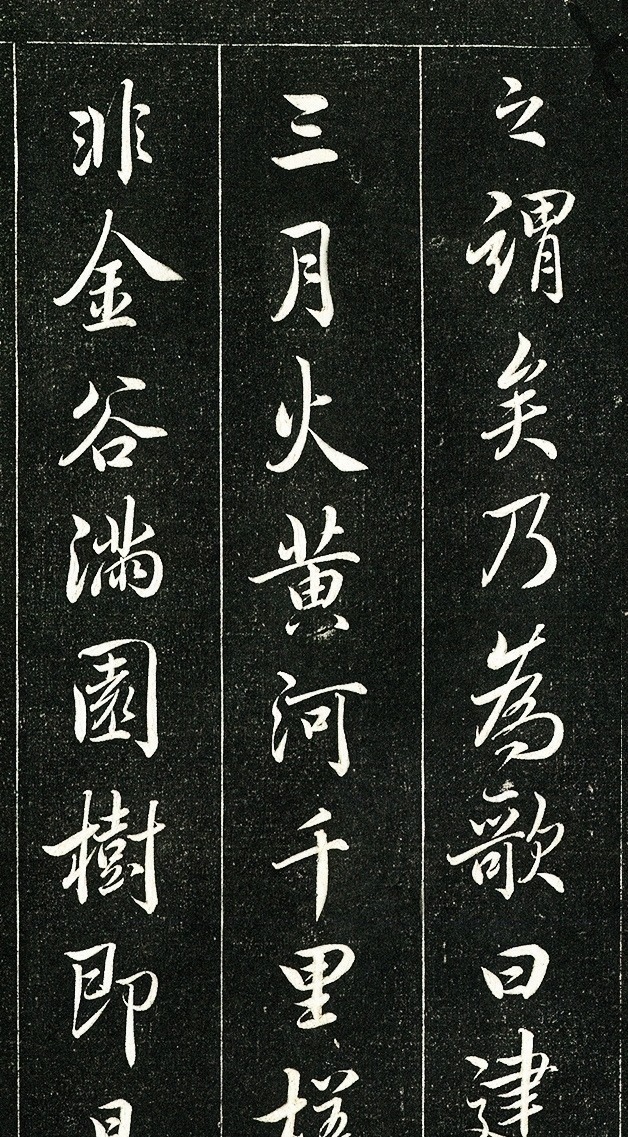 之謂矣乃為歌曰建
三月火黃河千里
非金谷滿園樹即